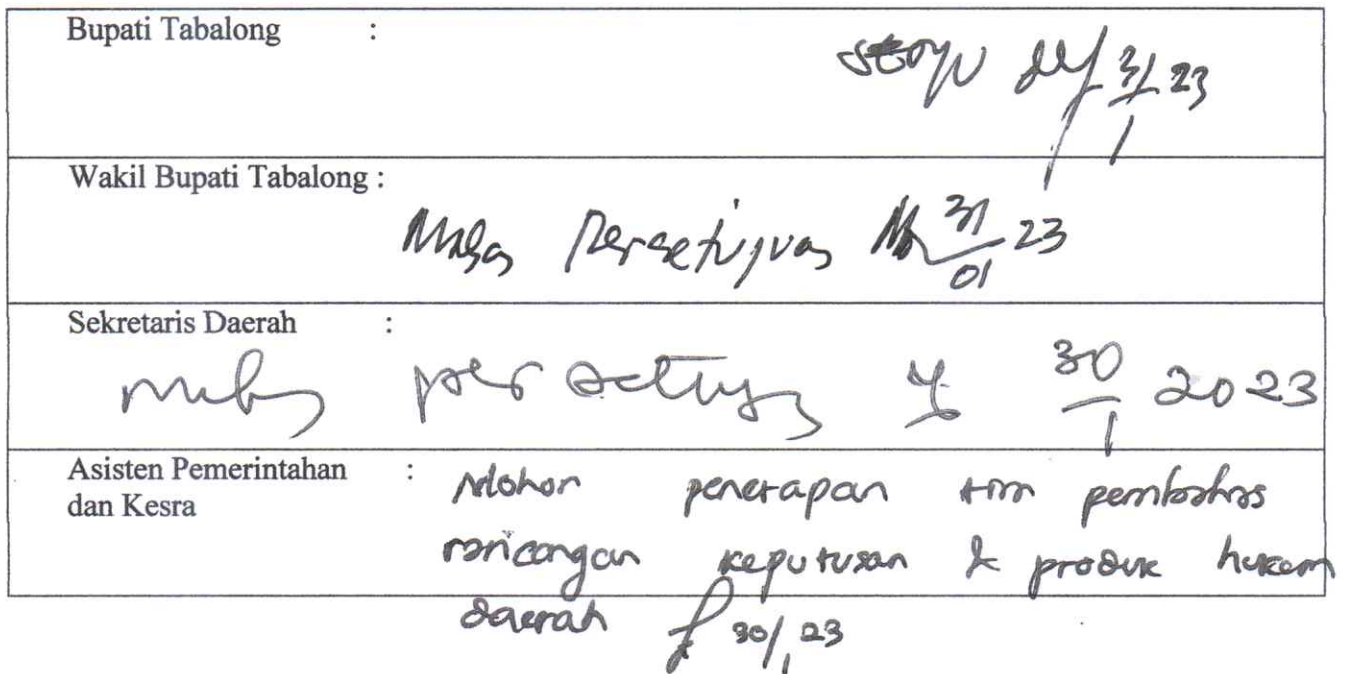 Bupati Tabalong :
setuju 31/1 23
Wakil Bupati Tabalong :
Mohon Persetujuan 31/01 23
Sekretaris Daerah :
mohon persetujuan 30/1 2023
Asisten Pemerintahan :
dan Kesra
Mohon penetapan tim pembahas
rancangan keputusan & produk hukum
daerah 30/1 23